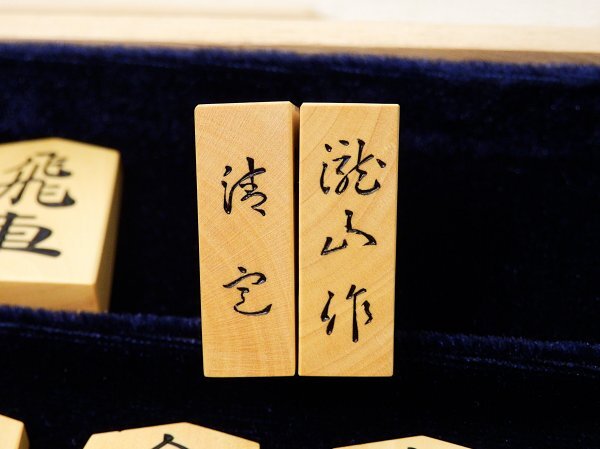 飛車
清定
瀧山作